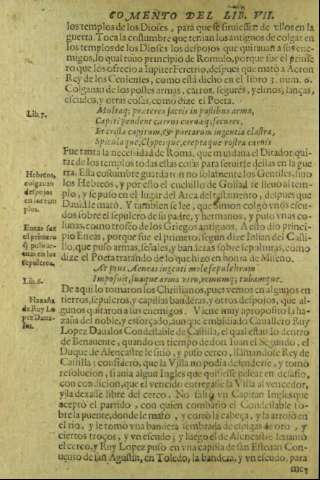 COMENTO DEL LIB. VII.
los templos de los Dioses, para que se siruiessen de ellos en la
guerra. Toca la costumbre que tenian los antiguos de colgar en
los templos de los Dioses los despojos que quitauan a sus ene-
migos, lo qual tuuo principio de Romulo, porque fue el prime
ro que los ofrecio a Iupiter Feretrio, despues que mató a Acron
Rey de los Cenineses, como está dicho en el libro 3. num. 6.
Colgauan de los postes armas, carros, segures, yelmos, lanças,
escudos, y otras cosas, como dize el Poeta.
Lib. 7.
Multaq; præterea sacris in postibus arma,
Capti pendent currus curuæq; secures,
Et cristæ capitum, & portarum ingentia claustra,
Spiculaque, Clypeique, ereptaque rostra carinis
Fue tanta la necessidad de Roma, que mandaua el Ditador qui-
tar de los templos todas estas cosas para seruirse dellas en la gue
rra. Esta costumbre guardaron no solamente los Gentiles, sino
los Hebreos, y por esso el cuchillo de Golias se lleuó al tem-
plo, y se puso en el lugar del Arca del testamento, despues que
Dauid le mató. Y tambien se lee, que Simon colgó unos escu-
dos sobre el sepulcro de su padre, y hermanos, y puso vnas co-
lunas, como trofeo de los Griegos antiguos. A esto dio princi-
pio Eneas, porque fue el primero, segun dize Iulian del Casti-
llo, que puso armas, señales, y banderas sobre sepulturas, como
dize el Poeta tratando de lo que hizo en honra de Miseno.
Hebreos,
colgauan
despojos
en los tem
plos.
Eneas fue
el primero
q̃ puso ar-
mas en los
sepulcros.
At pius Aeneas ingenti mole sepulchrum
Imposuit, suaque arma viro, remumq; tubamque.
Lib. 6.
De aqui lo tomaron los Christianos, pues vemos en algunos en
tierros, sepulcros, y capillas banderas, y otros despojos, que al-
gunos quitaron a sus enemigos. Viene muy a proposito la ha-
zaña del noble, y
Hazaña
de Ruy Lo
pez Daua-
los.
Lopez Daualos Condestable de Castilla, el qual estando dentro
de Benauente, quando en tiempo de don Iuan el Segundo, el
Duque de Alencastre le sitió, y puso cerco, llamandose Rey de
Castilla; considero, que la Villa no podia defenderse, y tomó
resolucion, si auia algun Ingles que quisiesse pelear en desafio,
con condicion, que el vencido entregasse la Villa al vencedor,
y la dexasse libre del cerco. No faltó vn Capitan Ingles que
aceptó el partido, con quien combatio el Condestable so-
bre la puente, donde le mató, y cortó la cabeça, y la arrojó en
el rio, y le tomó vna bandera sembrada de espigas de oro, y
ciertos troços, y vn escudo, y luego el de Alencastre leuantó
el cerco, y Ruy Lopez puso en vna capilla de san Esteuan Con-
uento de san Agustin, en Toledo, la bandera, y vn escudo, para